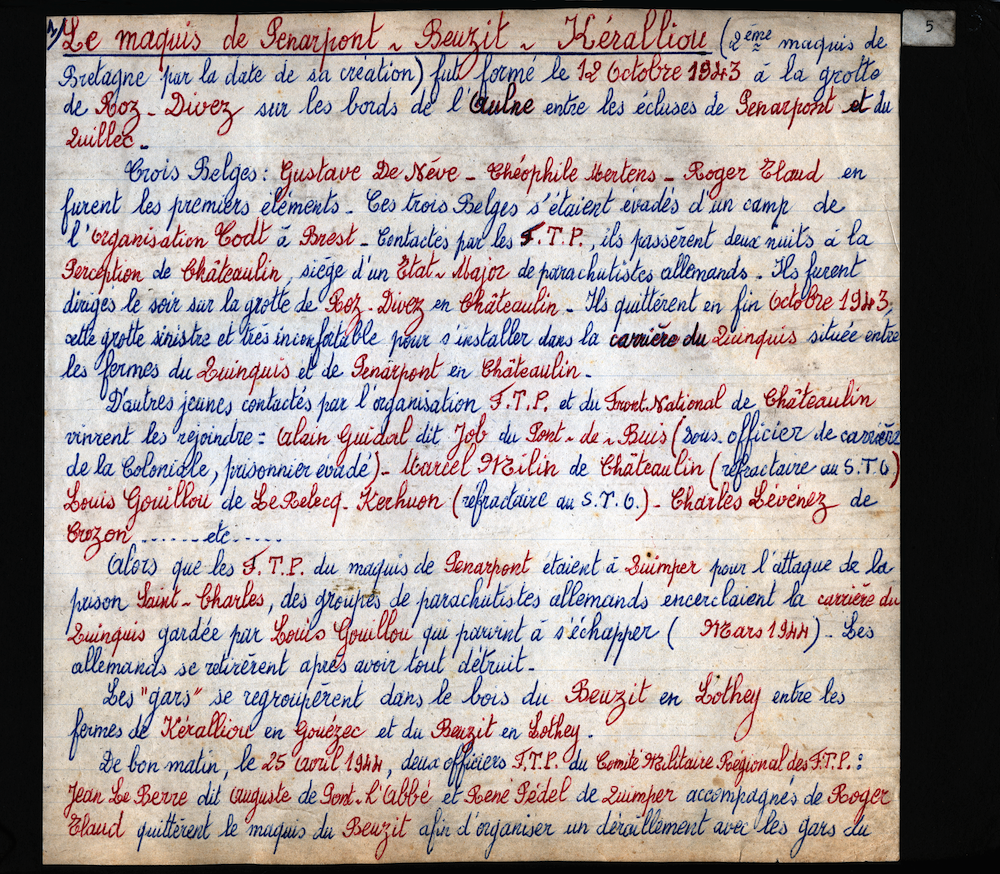 5
1/ Le maquis de Penarpont - Beuzit - Kéralliou (2ème maquis de
Bretagne par la date de sa création) fut formé le 12 Octobre 1943 à la grotte
de Roz-Divez sur les bords de l'Aulne entre les écluses de Penarpont et du
Quillec.
Trois Belges : Gustave De Nève - Théophile Mertens - Roger Elaud en
furent les premiers éléments - Ces trois Belges s'étaient évadés d'un camp de
l'organisation Todt à Brest - Contactés par les F.T.P., ils passèrent deux nuits à la
Perception de Châteaulin, siège d'un Etat-Major de parachutistes allemands - Ils furent
dirigés le soir sur la grotte de Roz-Divez en Châteaulin - Ils quittèrent en fin Octobre 1943,
cette grotte sinistre et très inconfortable pour s'installer dans la carrière du Quinquis située entre
les fermes du Quinquis et de Penarpont en Châteaulin -
D'autres jeunes contactés par l'organisation F.T.P. et du Front National de Châteaulin
vinrent les rejoindre : Alain Guidal dit Job du Pont-de-Buis (sous officier de carrière
de la Coloniale, prisonnier évadé) - Marcel Milin de Châteaulin (réfractaire au S.T.O)
Louis Gouillou de Le Relecq-Kerhuon (réfractaire au S.T.O.) - Charles Lévénez de
Crozon ......etc.....
Alors que les F.T.P. du maquis de Penarpont étaient à Quimper pour l'attaque de la
prison Saint-Charles, des groupes de parachutistes allemands encerclaient la carrière du
Quinquis gardée par Louis Gouillou qui parvint à s'échapper ( Mars 1944) - Les
allemands se retirèrent après avoir tout détruit -
Les "gars" se regroupèrent dans le bois du Beuzit en Lothey entre les
fermes de Kéralliou en Gouézec et du Beuzit en Lothey.
De bon matin, le 25 avril 1944, deux officiers F.T.P. du Comité Militaire Régional des F.T.P. :
Jean Le Berre dit Auguste de Pont-L'Abbé et René Pédel de Quimper accompagnés de Roger
Elaud quittèrent le maquis du Beuzit afin d'organiser un déraillement avec les gars du